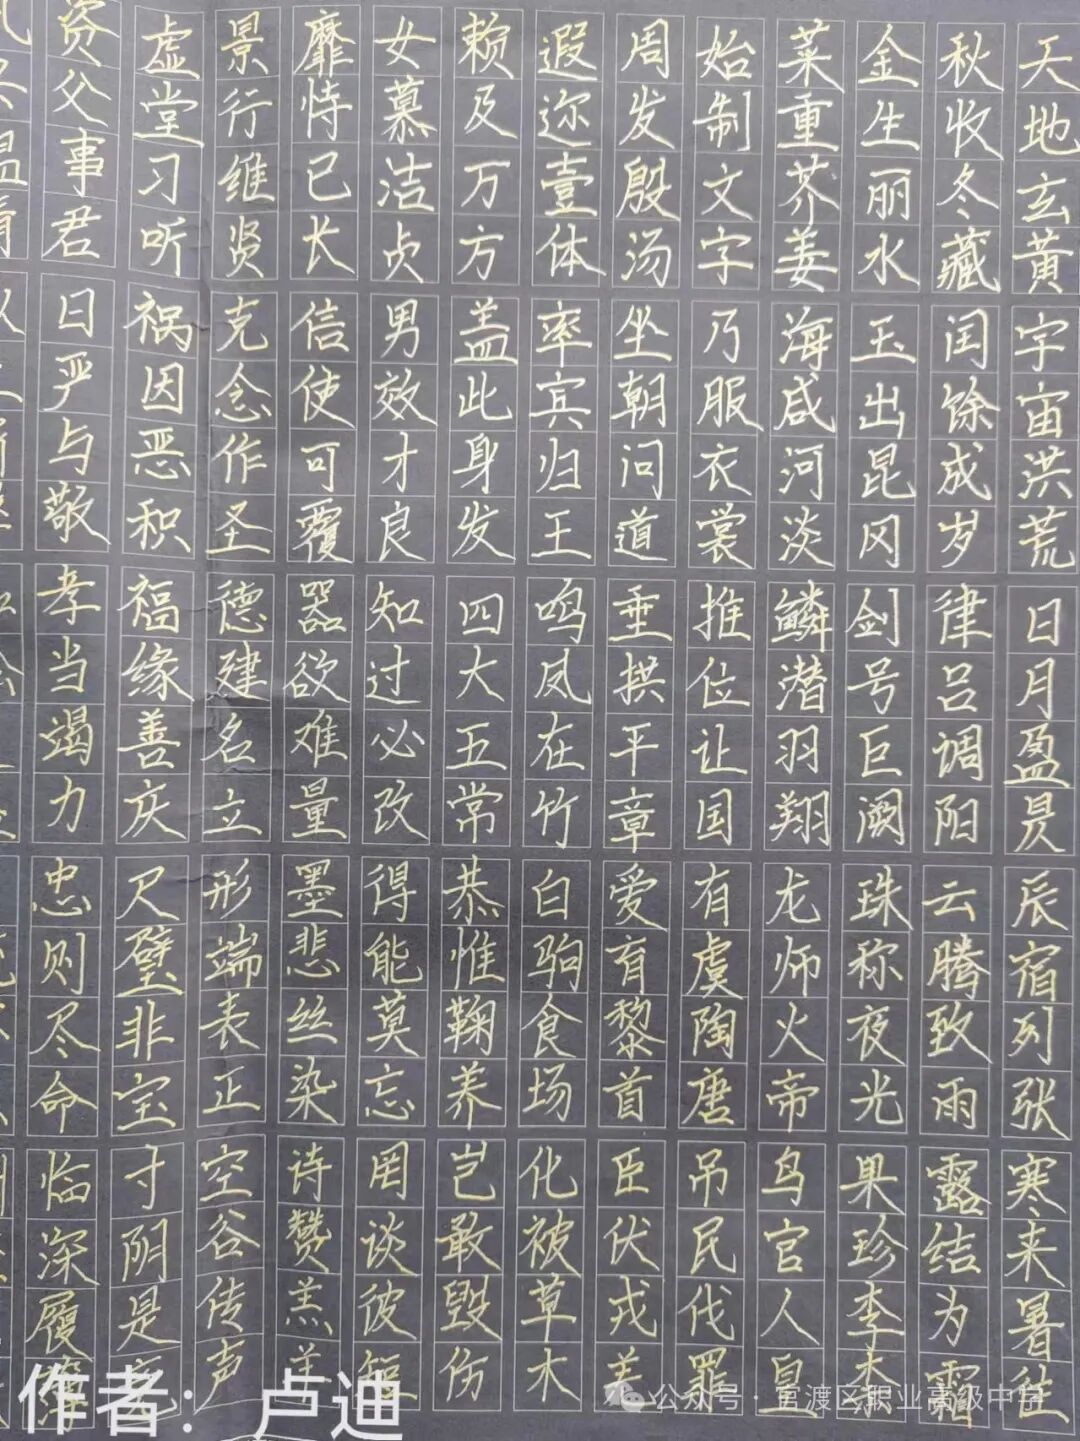 天地玄黄宇宙洪荒日月盈昃辰宿列张寒来暑往
秋收冬藏闰馀成岁律吕调阳云腾致雨露结为霜
金生丽水玉出昆冈剑号巨阙珠称夜光果珍李柰
菜重芥姜海咸河淡鳞潜羽翔龙师火帝鸟官人皇
始制文字乃服衣裳推位让国有虞陶唐吊民伐罪
周发殷汤坐朝问道垂拱平章爱育黎首臣伏戎羌
遐迩壹体率宾归王鸣凤在竹白驹食场化被草木
赖及万方盖此身发四大五常恭惟鞠养岂敢毁伤
女慕洁贞男效才良知过必改得能莫忘罔谈彼短
靡恃已长信使可覆器欲难量墨悲丝染诗赞羔羊
景行维贤克念作圣德建名立形端表正空谷传声
虚堂习听祸因恶积福缘善庆尺璧非宝寸阴是
资父事君曰严与敬孝当竭力忠则尽命临深履
作者：卢迪
公众号·官渡区职业高级中学